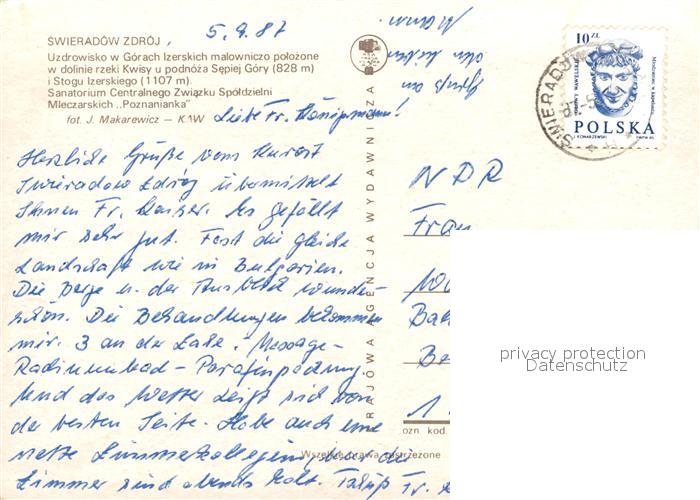 5.9.87
ŚWIERADÓW ZDRÓJ,
Uzdrowisko w Górach Izerskich malowniczo położone
w dolinie rzeki Kwisy u podnóża Sępiej Góry (828 m)
i Stogu Izerskiego (1107 m).
Sanatorium Centralnego Związku Spółdzielni
Mleczarskich „Poznanianka"
fot. J. Makarewicz — KAW
Liebe Fr.
Herzliche Grüße vom Kurort
Świeradow Zdrój übermittelt
Ihnen Fr. Es gefällt
mir sehr gut. Fast die gleiche
Landschaft wie in Bulgarien.
Die Berge u. der Ausblick wunder-
schön. Die Behandlungen bekommen
mir. 3 an der Zahl. Massage-
Radiumbad - Parafinpackung
Und das Wetter zeigt sich von
der besten Seite. Habe auch eine
nette Zimmerkollegin, nur die
Zimmer sind abends kalt.
KRAJOWA AGENCJA WYDAWNICZA
Wszelkie prawa zastrzeżone
10 ZŁ
POLSKA
ŚWIERADÓW
NDR
Frau
1
ozn. kod.
privacy protection
Datenschutz